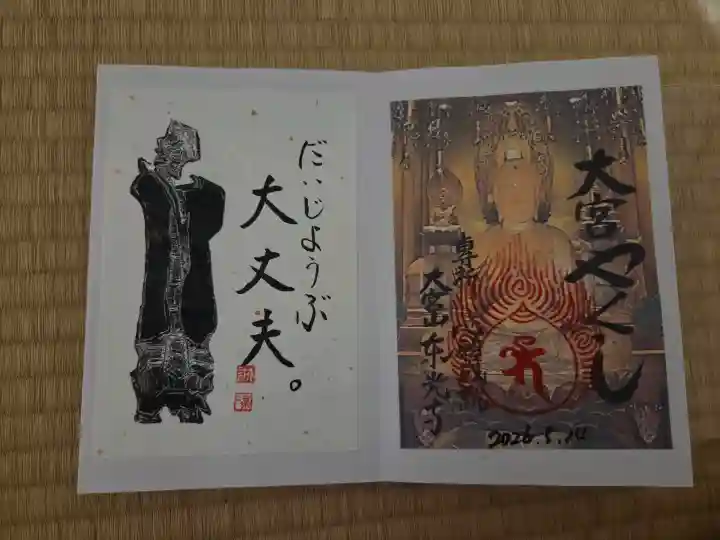 だいじようぶ
大丈夫。
大宮やくし
大宮山東光寺
2026.5.14